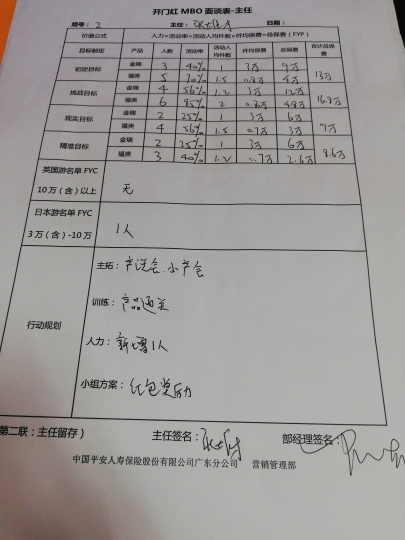 开门红 MBO 面谈表-主任
组号： 2 主任： 日期：
价值公式 人力×活动率×活动人均件数×件均保费=总保费（FYP）
目标制定 产品 人数 活动率 活动人均件数 件均保费 总保费 合计总保费
初定目标 金瑞 3 40% 1 3万 9万 13万
福类 5 70% 1.5 0.8万 4万
挑战目标 金瑞 4 56% 1.2 3万 12万 16.8万
福类 6 85% 2 0.8万 4.8万
现实目标 金瑞 2 25% 1 3万 6万 9万
福类 4 56% 1.5 0.7万 3万
精准目标 金瑞 2 25% 1 3万 6万 8.6万
福类 3 40% 1.2 0.7万 2.6万
英国游名单 FYC
10 万（含）以上 无
日本游名单 FYC
3 万（含）-10 万 1人
行动规划
主拓：产说会、小产会
训练：产品通关
人力：新增1人
小组方案：红包奖励
第二联：主任留存） 主任签名： 部经理签名：
中国平安人寿保险股份有限公司广东分公司 营销管理部